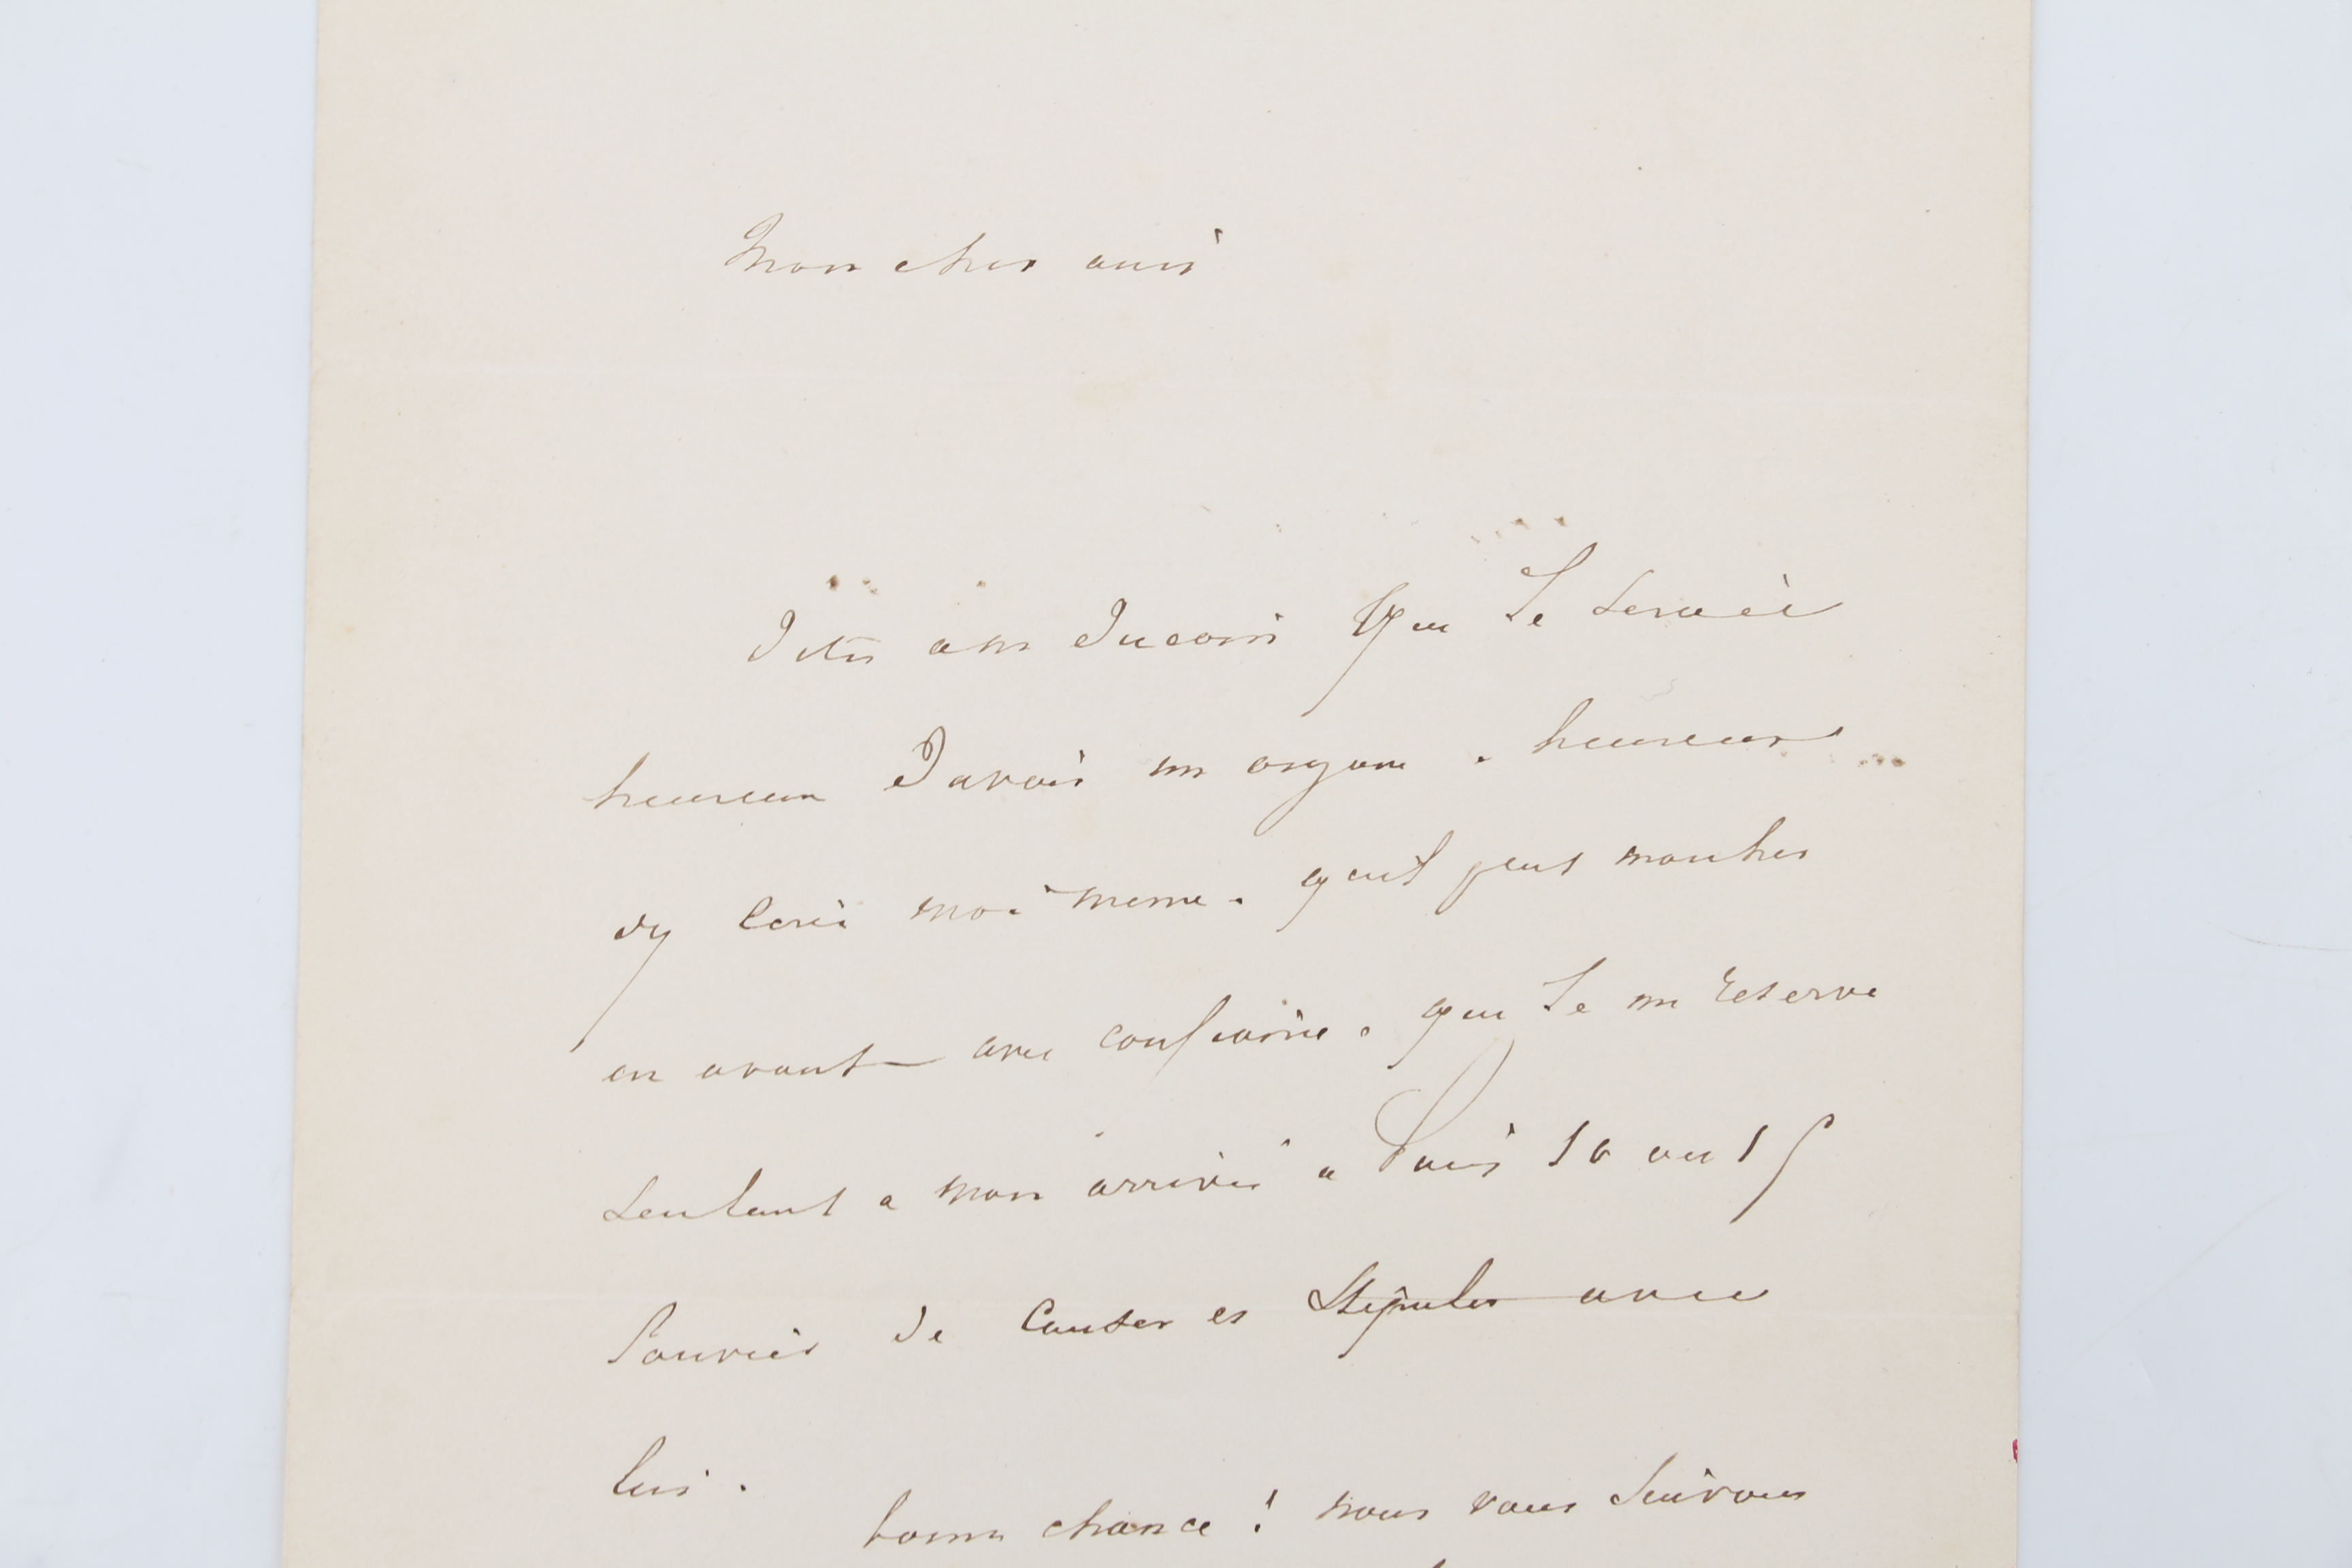 Mon cher ami
Dites à Mr Ducoin que je serais
heureux d'avoir un organe. heureux
d'y écrire moi meme. qu'il peut marcher
en avant avec confiance. que je me réserve
seulement a mon arrivée a Paris 10 ou 15
Janvier de causer et stipuler avec
lui.
bonne chance! nous vous suivrons